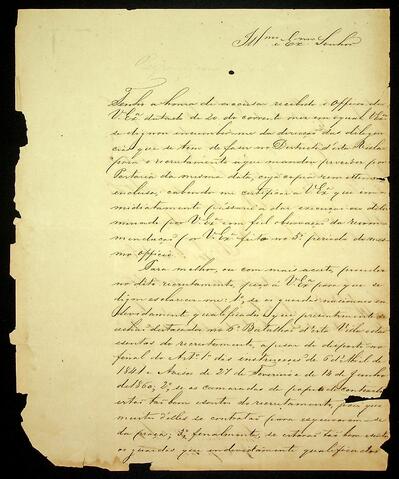 Ill.mo e Ex.mo Senhor
Tenho a honra de accusar recebido o Officio de
V. Ex.ª datado de 20 do corrente mez em o qual V. Ex.ª
se dignou incumbir-me da direcção das diligen
cias que se tem de fazer no Districto d'esta
para o recrutamento a que mandou proceder por
Portaria da mesma data, cuja copia remetteu-me
inclusa; cabendo-me certificar a V. Ex.ª que im
mediatamente passarei a dar execução ao deter
minado por V. Ex.ª com fiel observação da recom
mendação por V. Ex.ª feita no 3º periodo do mes
mo officio.
Para melhor, ou com mais acerto proceder
no dito recrutamento, peço a V. Ex.ª para que se
digne esclarecer-me: 1º, se os guardas nacionaes in
devidamente qualificados, que presentemente se
achão destacados no 6º Batalhão d'esta Villa estão
isentos do recrutamento, apesar do disposto no
final do Artº 1º das instrucções de 6 de Abril de
1841 e Avisos de 27 de Fevereiro e 14 de Junho
de 1860; 2º, se os camaradas de
estão tão bem isentos do recrutamento, por que
muitos d'elles se contratão para esquivarem-se
da praça; 3º, finalmente, se estarão tão bem isentos
os guardas que indevidamente qualificados